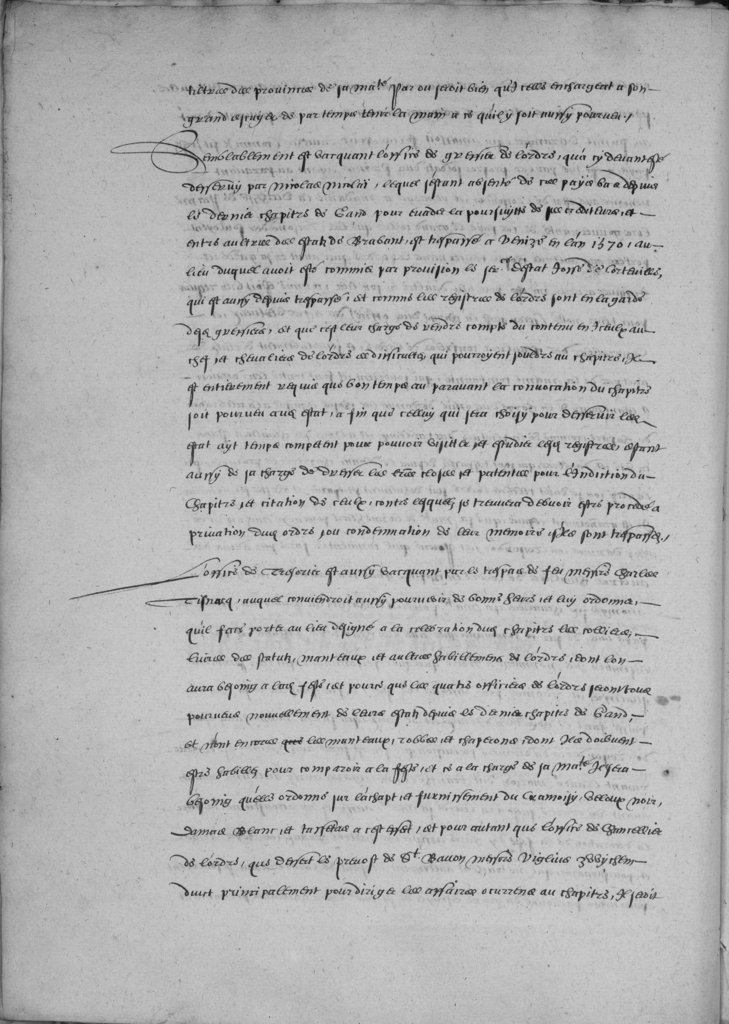 tiltres des provinces de sa ma.te Par ou seroit bien qu'Icelle enchargeat a son
grand escuyer de par temps tenir la main a ce quil y soit aussy pourveu /
Semblablement est vacquant l'office de greffier de l'ordre, qu'a cy devant esté
desservy par Nicolas Nicolai, lequel sestant absenté de ces pays bas depuis
le dernier chapitre de Gand pour evader la poursuytte de ses crediteurs, et
entre aultres des estatz de Brabant, est trespassé a Venize en l'an 1570, au
lieu duquel avoit esté commis par provision le secr.e d'Estat Josse de Corteville,
qui est aussy depuis trespassé, et comme les registres de l'ordre sont en la garde
desd. greffiers, et que c'est leur charge de rendre compte du contenu en Iceulx au
chef et chevaliers de l'ordre es difficultez qui pourroyent souldre au chapitre, Il
est entierement requis que bon temps au paravant la convocation du chapitre
soit pourveu aud. estat, a fin que celluy qui sera choisy pour desservir led.
estat ayt temps competent pour pouvoir visiter et estudier lesd. registres, estant
aussy de sa charge de dresser les l'res closes et patentes pour l'Indiction du
Chapitre, et citation de ceulx, contre lesquelz se trouvera debvoir estre procedé a
privation dud. ordre, ou condemnation de leur memoire s'ilz sont trespassez,
L'office de Tresorier est aussy vacquant par le trespas de feu messire Charles
Tisnacq, auquel conviendroit aussy pourveoir de bonne heure, et luy ordonner,
quil face porter au lieu designé a la celebration dud. chapitre les colliers,
livres des statutz, manteaux, et aultres habillemens de l'ordre, dont l'on
aura besoing a lad. feste, et pource que les quatre officiers de l'ordre seront tous
pourveus nouvellement de leurs estatz depuis le dernier chapitre de Gand,
et n'ont encores les manteaux, robbes et chaperons, dont Ilz doibvent
estre habillez pour comparoir a la feste, et ce a la charge de sa ma.te Il sera
besoing qu'elle ordonne sur l'achapt et furnissement du Cramoisy, Veloux noir,
Damas Blanc, et taffetas a cest effect, et pour autant que l'office de Chancellier
de l'ordre, que dessert le prevost de S.t Bavon, messire Viglius Zwychem
duict principalement pour diriger les affaires ocurrens au chapitre, Il seroit